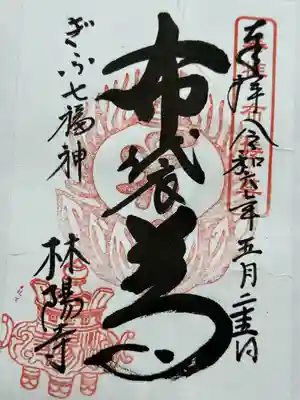 奉拝 令和 年五月二 日
布袋尊
ぎふ七福神
林陽寺